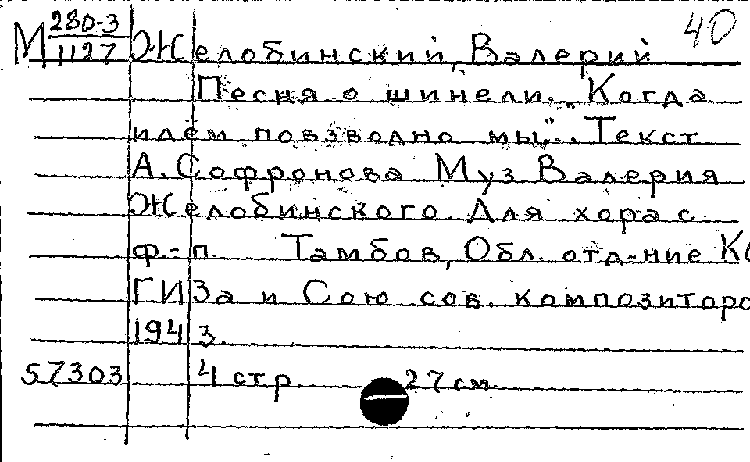 40
М 280-3
1127 Желобинский, Валерий
Песня о шинели. „Когда
идём повзводно мы". Текст
А. Софронова Муз Валерия
Желобинского. Для хора с
ф.-п. Тамбов, Обл. отд-ние Ко
ГИЗа и Сою сов. композиторо
1943.
57303 4 стр. 27 см.